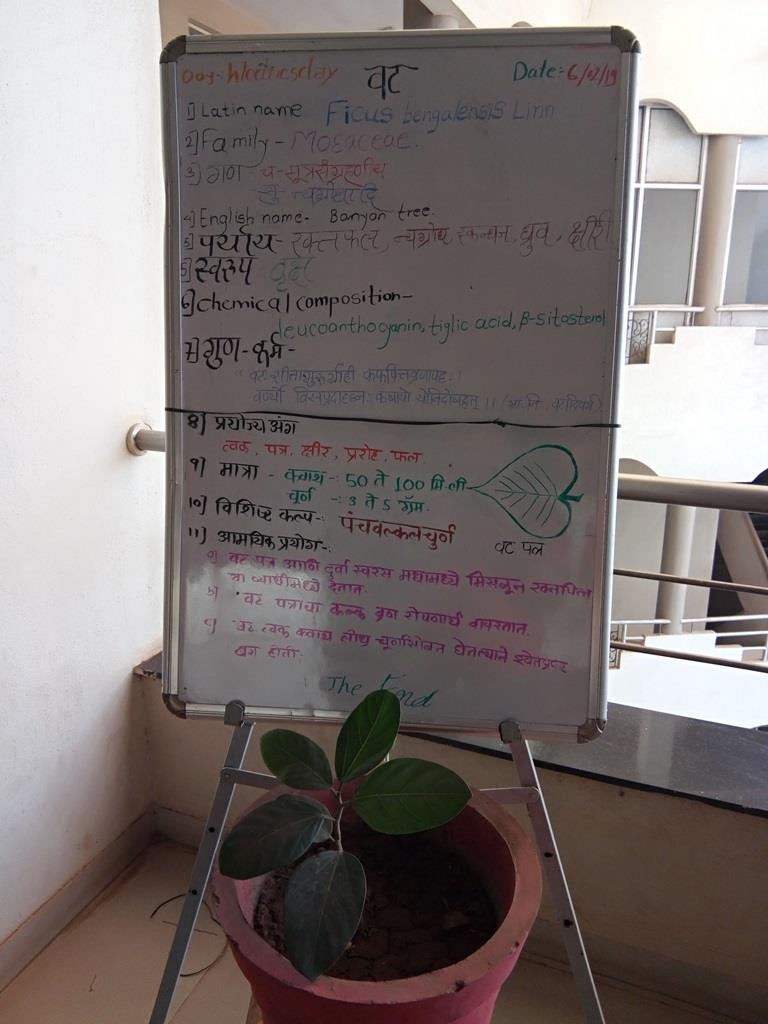 Day:- Wednesday वट Date:- 6/02/19
1) Latin name Ficus bengalensis Linn
2) Family - Moraceae.
3) गण - च - मूत्रसंग्रहणीय
सु - न्यग्रोधादि
4) English name- Banyan tree.
5) पर्याय - रक्तफल, न्यग्रोध, स्कन्धज, ध्रुव, क्षीरी
5) स्वरूप वृक्ष
6) chemical composition-
leucoanthocyanin, tiglic acid, β-sitosterol
7) गुण - कर्म -
वटः शीतो गुरुर्ग्राही कफपित्तव्रणापहः।
वर्ण्यो विसर्पदाहघ्नः कषायो योनिदोषहृत् ।। (भा.नि. वटादिवर्ग)
8) प्रयोज्य अंग
त्वक, पत्र, क्षीर, प्ररोह, फल.
9) मात्रा - क्वाथ -: 50 ते 100 मि.ली
चूर्ण -: 3 ते 5 ग्रॅम.
10) विशिष्ट कल्प -: पंचवल्कल चूर्ण
वट पत्र
11) आमयिक प्रयोग -:
a) वट पत्र आणि दुर्वा स्वरस मधामध्ये मिसळून रक्तपित्त
या व्याधीमध्ये देतात.
b) वट पत्राचा कल्क व्रण रोपणार्थ वापरतात.
c) वट त्वक क्वाथ लोध्र चूर्णासोबत घेतल्याने श्वेतप्रदर
बरा होतो.
The End